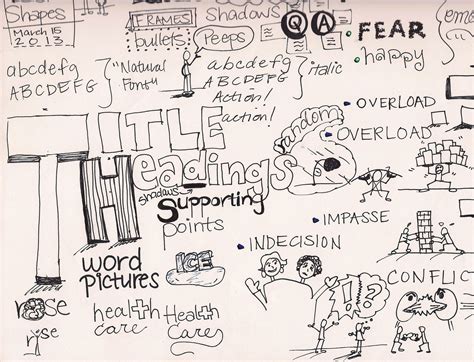 Shapes
March 15
2013
FRAMES
bullets
Shadows
Peeps
Q A
FEAR
happy
abcdefg
ABCDEFG
"Natural
Font"
abcdefg
ABCDEFG
italic
Action!
action!
TITLE
Headings
shadows
Supporting
points
random
OVERLOAD
OVERLOAD
IMPASSE
INDECISION
CONFLIC
word
pictures
ICE
rose
rise
health
care
Health
Cares
!?!